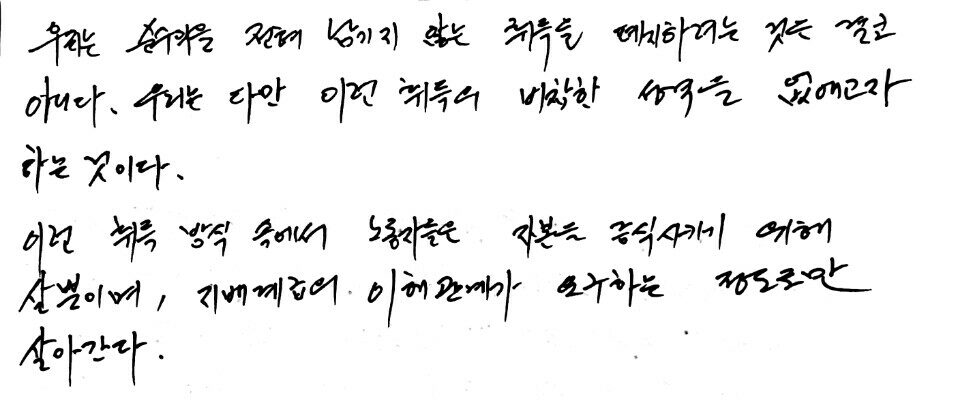 우리는 순수익을 전혀 남기지 않는 취득을 폐지하려는 것은 결코
아니다. 우리는 다만 이런 취득의 비참한 성격을 없애고자
하는 것이다.
이런 취득 방식 속에서 노동자들은 자본을 증식시키기 위해
살뿐이며, 지배계급의 이해관계가 요구하는 정도로만
살아간다.